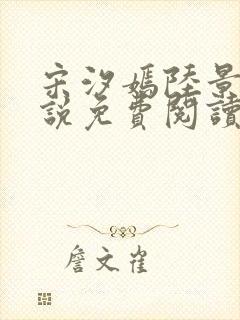 宋汐嫣陸景
說免費閱讀
詹文雀